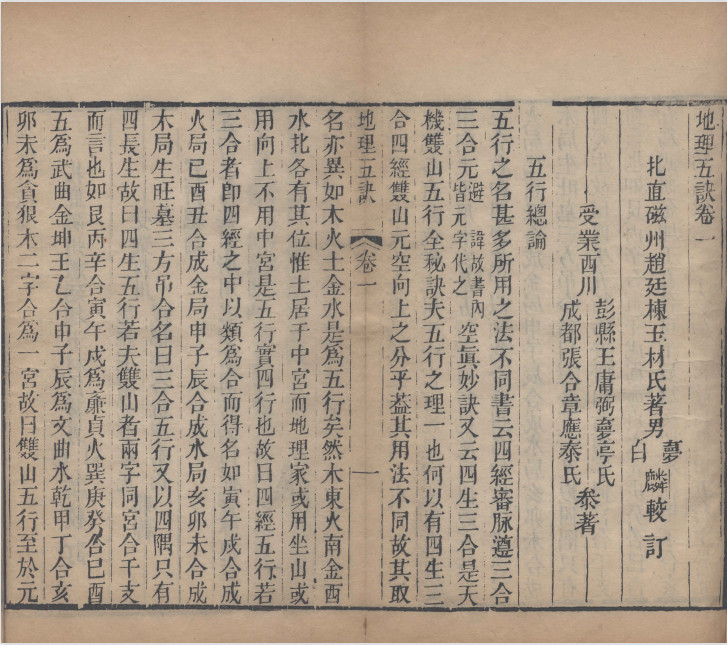 地理五訣卷一
北直磁州趙廷棟玉材氏著男夢白麟較訂
受業西川彭縣王庸弼夔亭氏成都張合章應泰氏叅著
五行總論
五行之名甚多所用之法不同書云四經審脉遵三合
三合元避諱故書內皆元字代之空眞妙訣又云四生三合是天
機雙山五行全秘訣夫五行之理一也何以有四生三
合四經雙山元空向上之分乎葢其用法不同故其取
地理五訣 卷一 一
名亦異如木火土金水是爲五行矣然木東火南金西
水北各有其位惟土居于中宮而地理家或用坐山或
用向上不用中宮是五行實四行也故曰四經五行若
三合者卽四經之中以類爲合而得名如寅午戌合成
火局巳酉丑合成金局申子辰合成水局亥卯未合成
木局生旺墓三方吊合名曰三合五行又以四隅只有
四長生故曰四生五行若夫雙山者兩字同宮合干支
而言也如艮丙辛合寅午戌爲亷貞火巽庚癸合巳酉
五爲武曲金坤王乙合申子辰爲文曲水乾甲丁合亥
卯未爲貪狠木二字合爲一宮故曰雙山五行至於元